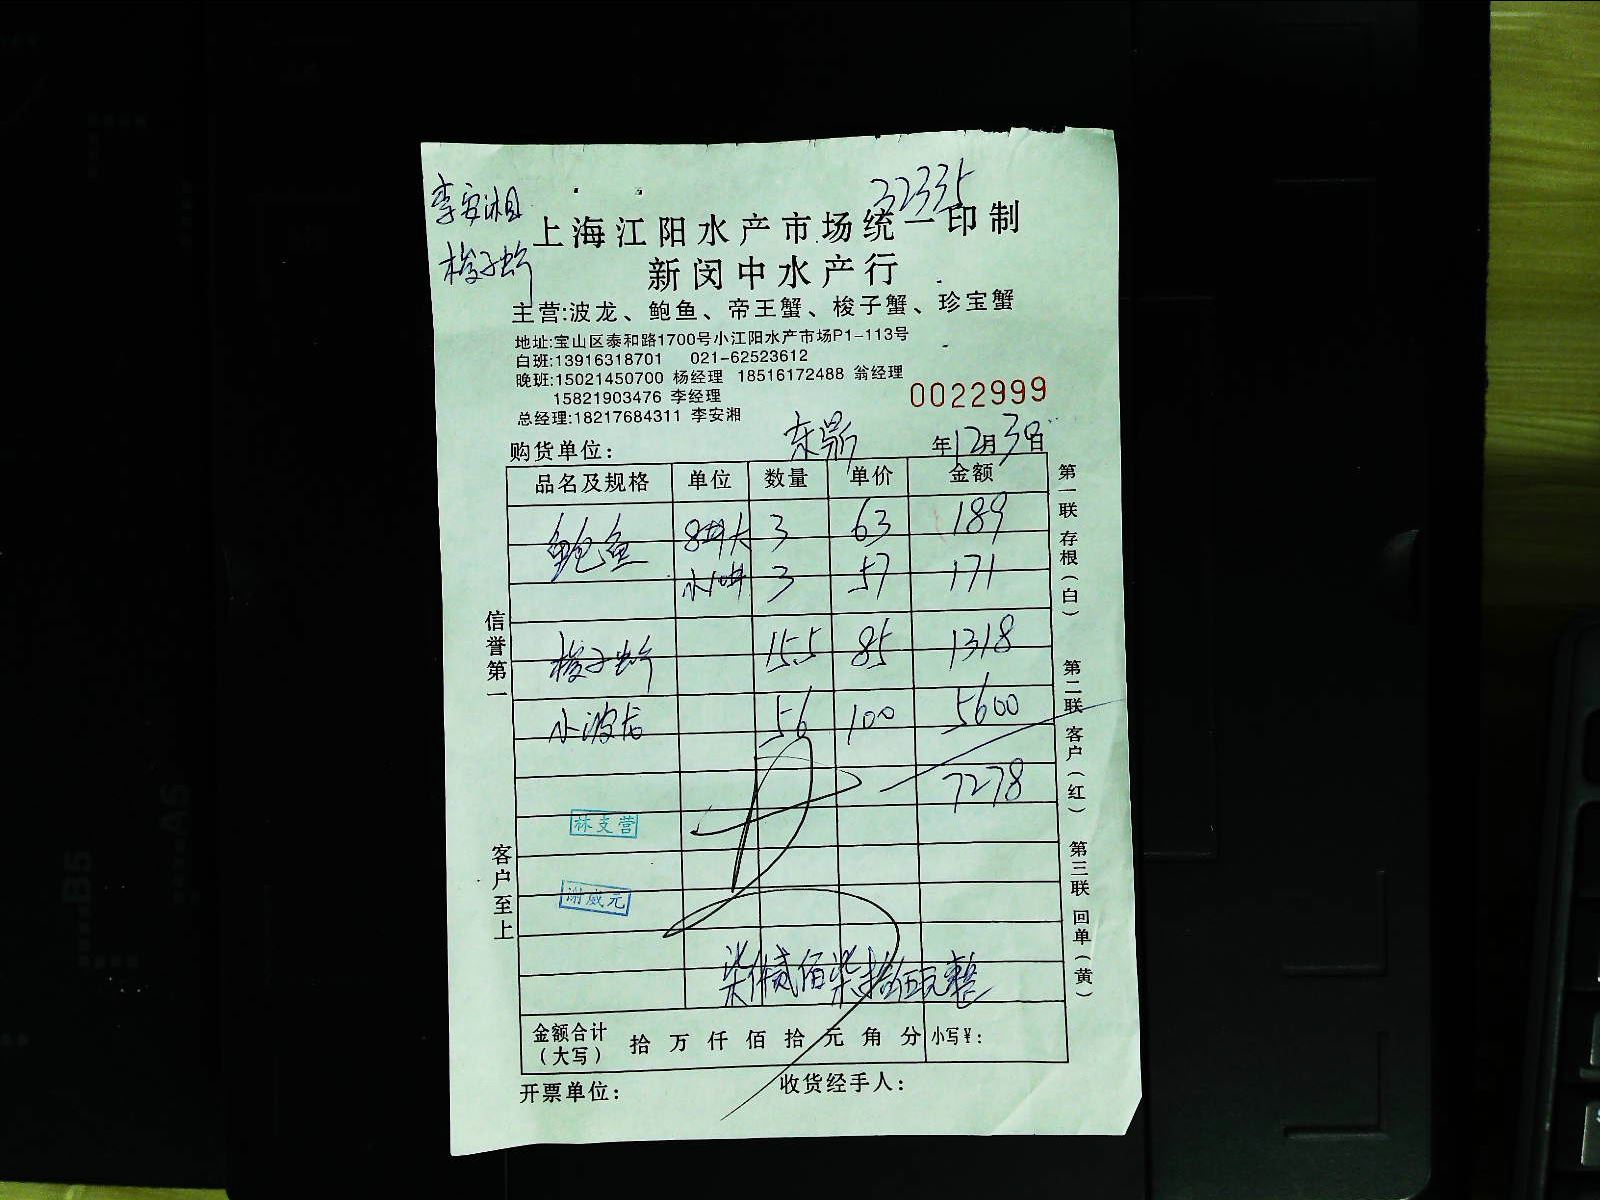 32335
李安湘
梭子蟹
上海江阳水产市场统一印制
新闵中水产行
主营:波龙、鲍鱼、帝王蟹、梭子蟹、珍宝蟹
地址:宝山区泰和路1700号小江阳水产市场P1-113号
白班:13916318701 021-62523612
晚班:15021450700 杨经理 18516172488 翁经理
15821903476 李经理
总经理:18217684311 李安湘
0022999
购货单位: 东鼎 年12月3日
品名及规格 单位 数量 单价 金额
鲍鱼 8#大 3 63 189
3 57 171
梭子蟹 15.5 85 1318
小波龙 56 100 5600
7278
林支营
谢威元
柒仟贰佰柒拾伍元整
金额合计
(大写) 拾万仟佰拾元角分 小写¥:
开票单位: 收货经手人:
信誉第一
客户至上
第一联 存根(白)
第二联 客户(红)
第三联 回单(黄)
B5
A5